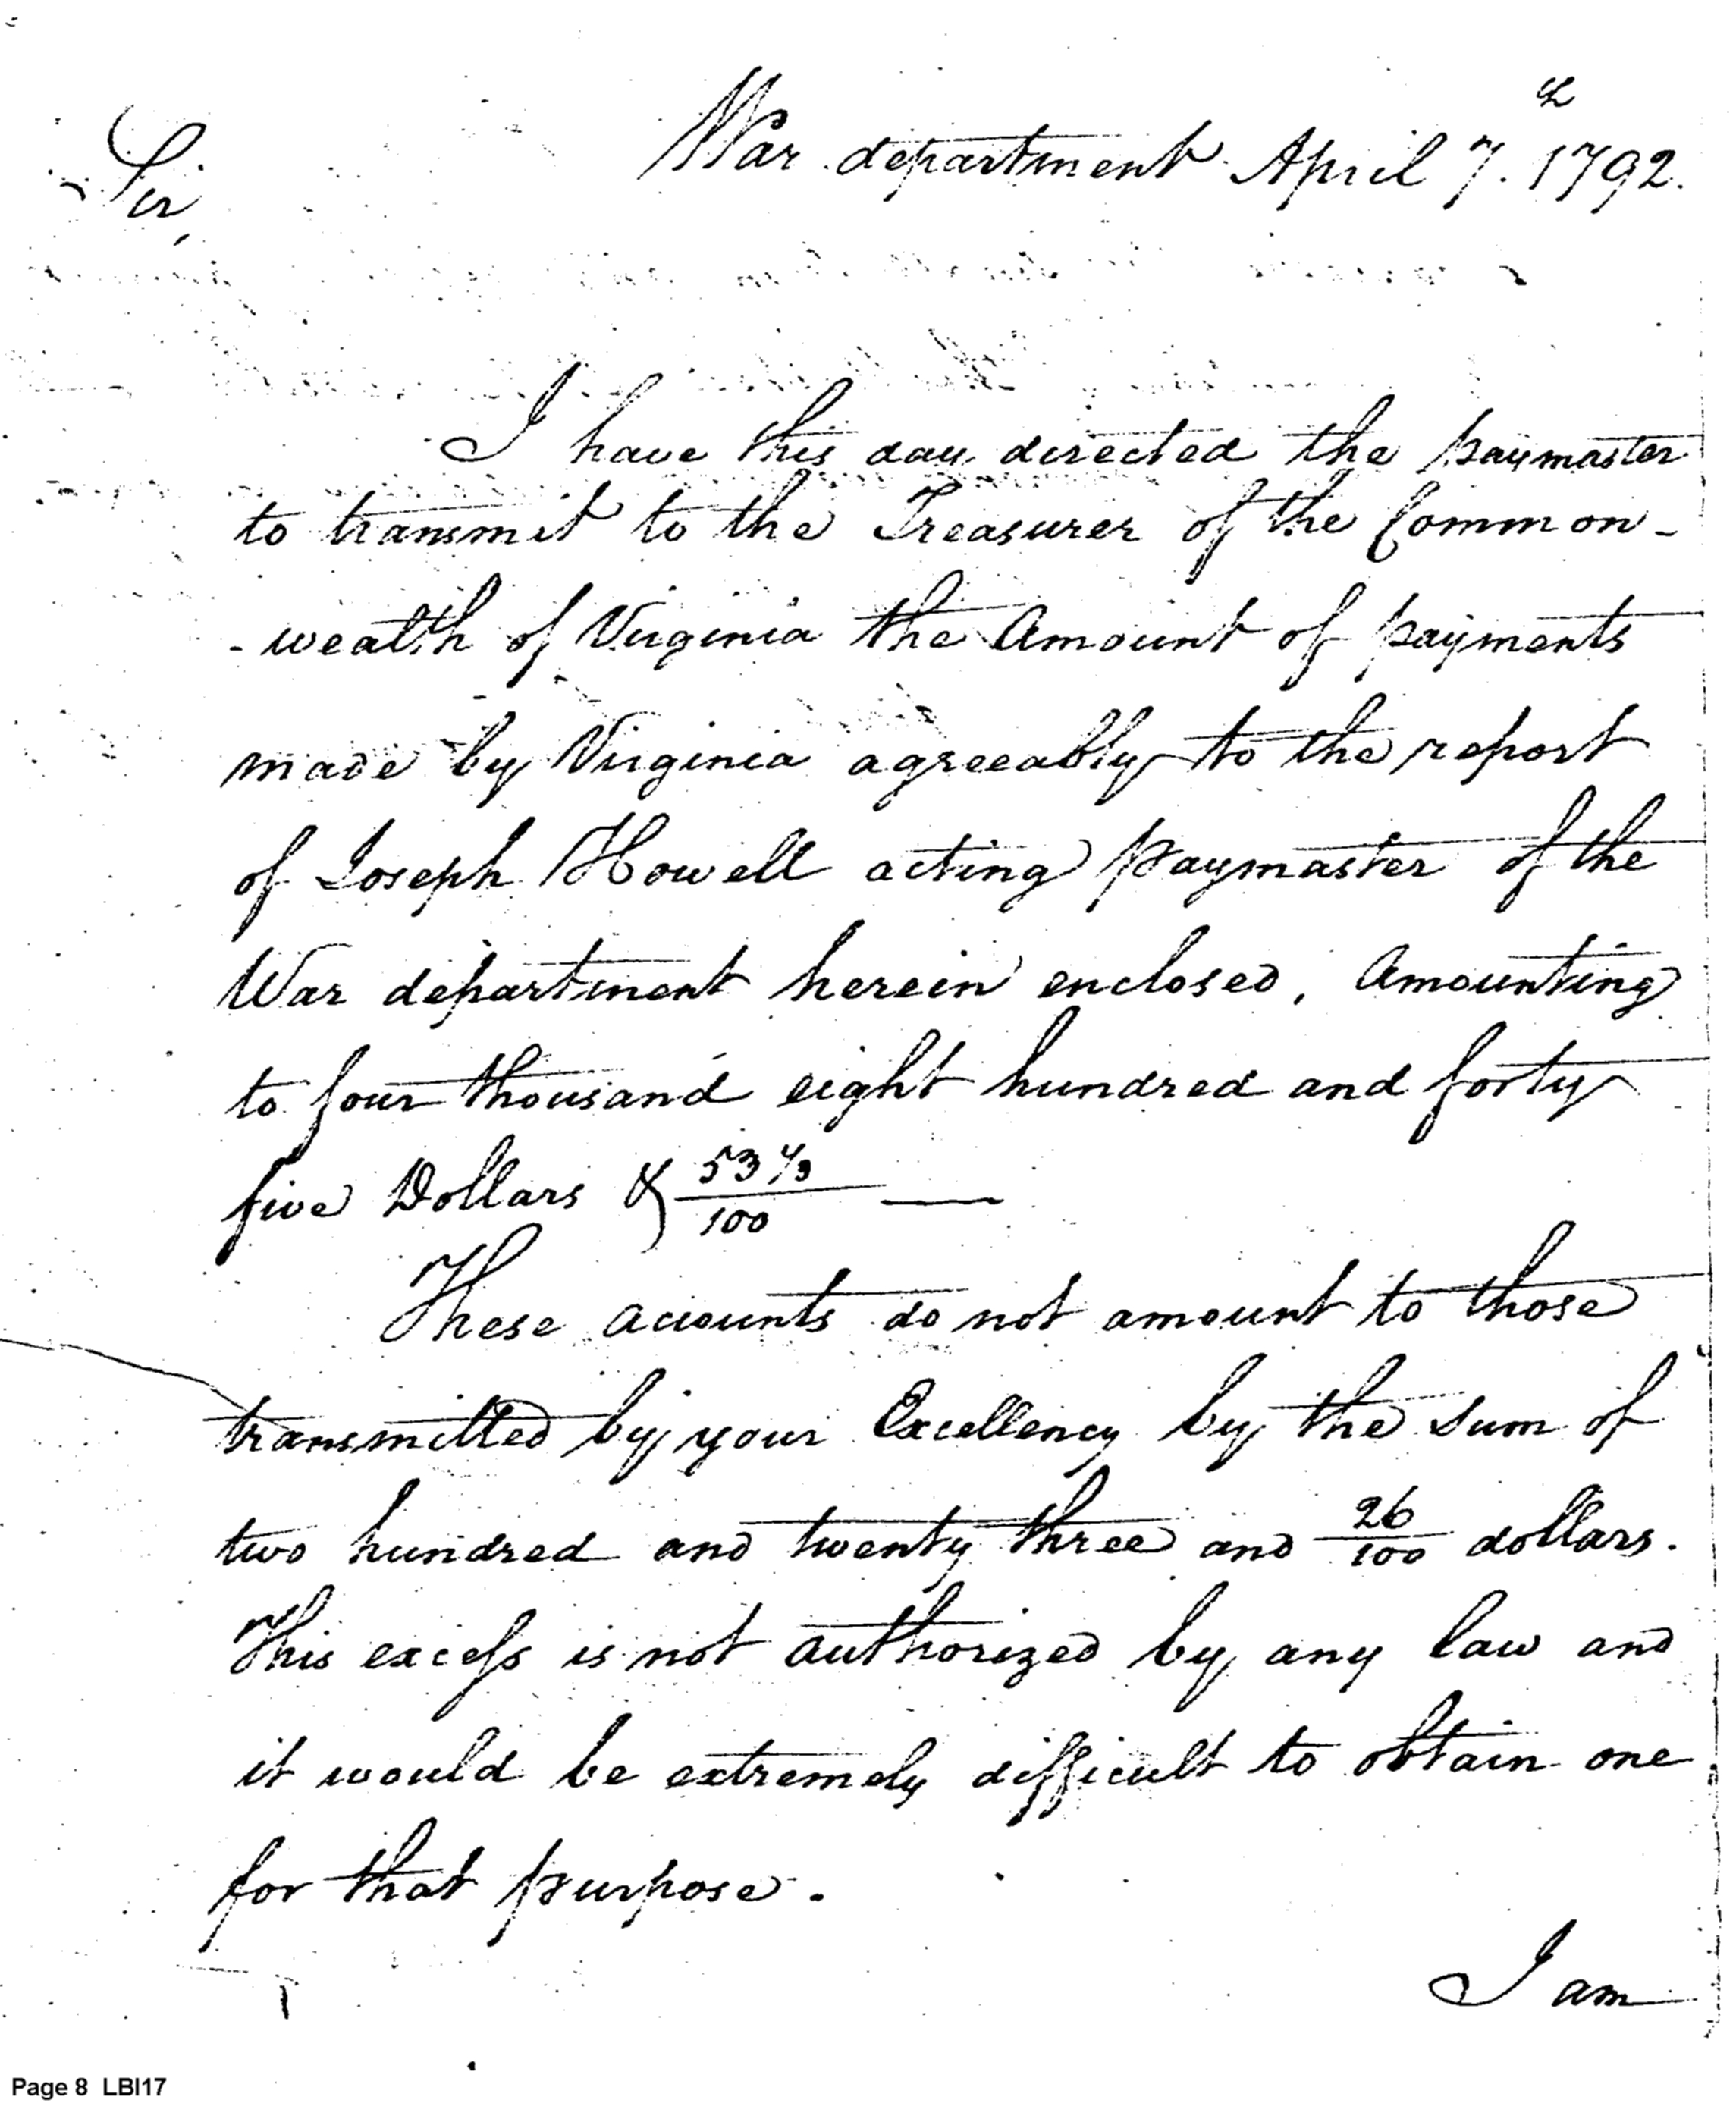 War department April 7.th 1792.
Sir,
I have this day directed the paymaster
to transmit to the Treasurer of the Common-
-wealth of Virginia the Amount of payments
made by Virginia agreeably to the report
of Joseph Howell acting paymaster of the
War department herein enclosed, Amounting
to four thousand eight hundred and forty
five Dollars & 53 1/3/100 —
These accounts do not amount to those
transmitted by your Excellency by the sum of
two hundred and twenty three and 26/100 dollars.
This excess is not authorized by any law and
it would be extremely difficult to obtain one
for that purpose.
I am
Page 8 LBI17